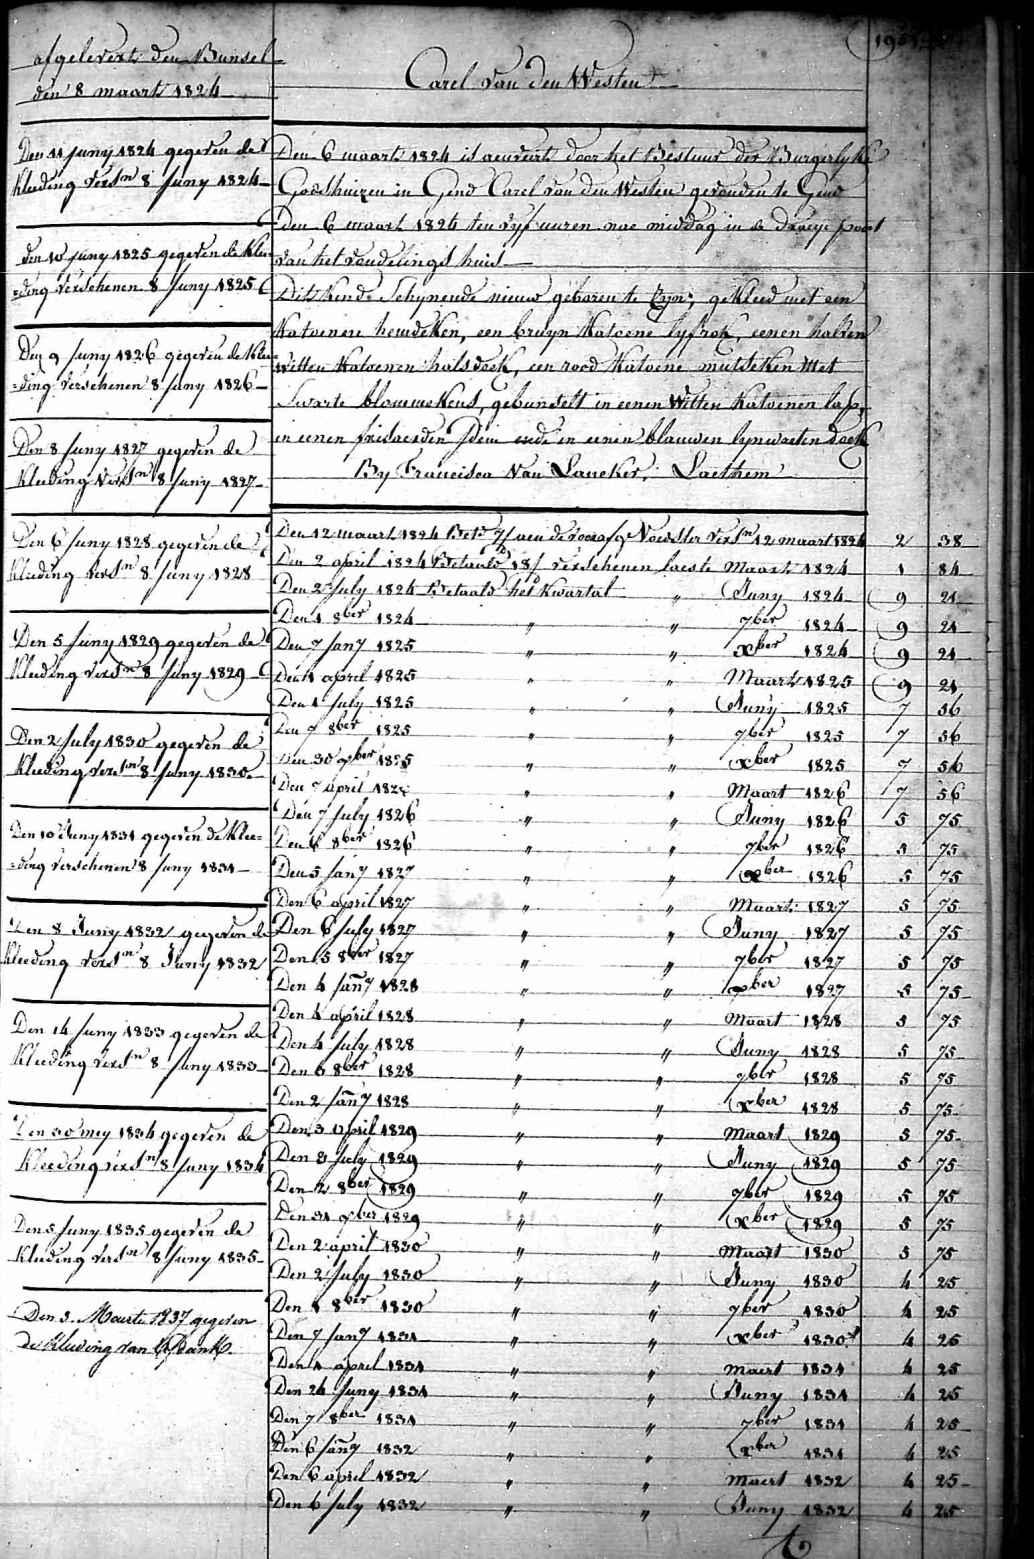 afgelevert den Bunsel
den 8 maart 1824
Den 11 Juny 1824 gegeven de
kleeding versn 8 Juny 1824
den 10 Juny 1825 gegeven de klee-
=ding verschenen 8 Juny 1825
Den 9 Juny 1826 gegeven de klee-
=ding verschenen 8 Juny 1826
Den 8 Juny 1827 gegeven de
kleeding versn 8 Juny 1827
Den 6 Juny 1828 gegeven de
kleeding versn 8 Juny 1828
Den 5 Juny 1829 gegeven de
kleeding versn 8 Juny 1829
Den 2 July 1830 gegeven de
kleeding versn 8 Juny 1830
Den 10 Juny 1831 gegeven de klee=
=ding verschenen 8 Juny 1831
Den 8 Juny 1832 gegeven de
kleeding versn 8 Juny 1832
Den 14 Juny 1833 gegeven de
kleeding versn 8 Juny 1833
Den 30 mey 1834 gegeven de
kleeding versn 8 Juny 1834
Den 5 Juny 1835 gegeven de
kleeding versn 8 Juny 1835
Den 3. Maarte 1837 gegeven
de kleeding van
Carel van den Westen
Den 6 maart 1824 is door het Bestuur der Burgerlyke
Godshuizen in Gend Carel van den Westen gevonden te Gend
Den 6 maart 1824 ten vyf uuren nae middag in de draeye poort
van het vondelings huis
Dit kinde Schynende nieuw geboren te zyn, gekleed met een
katoenen hemdeken, een bruyn katoene lyfrok, eenen halven
witten katoenen halsdoek, een rood katoene mutseken met
Swarte blommekens, gebunselt in eenen witten katoenen lap,
in eenen ende in eenen blauwen lynwaeten doek
By Francisca Van Laucker, Laethem
Den 12 maart 1824 Betd 7/ aen de voorafge Voedster versn 12 maart 1824 2 38
Den 2 april 1824 Betaald 18/ verschenen laeste Maart 1824 1 84
Den 2 July 1824 Betaald het kwartal " Juny 1824 9 21
Den 1 8ber 1824 " " 7ber 1824 9 21
Den 7 Jany 1825 " " xber 1824 9 21
Den 1 april 1825 " " Maart 1825 9 21
Den 1 July 1825 " " Juny 1825 7 56
Den 7 8ber 1825 " " 7ber 1825 7 56
Den 30 xber 1825 " " xber 1825 7 56
Den 7 april 1826 " " Maart 1826 7 56
Den 7 July 1826 " " Juny 1826 5 75
Den 6 8ber 1826 " " 7ber 1826 5 75
Den 5 Jany 1827 " " xber 1826 5 75
Den 6 april 1827 " " Maart 1827 5 75
Den 6 July 1827 " " Juny 1827 5 75
Den 5 8ber 1827 " " 7ber 1827 5 75
Den 4 Jany 1828 " " xber 1827 5 75
Den 4 april 1828 " " Maart 1828 5 75
Den 4 July 1828 " " Juny 1828 5 75
Den 6 8ber 1828 " " 7ber 1828 5 75
Den 2 Jany 1828 " " xber 1828 5 75
Den 3 April 1829 " " Maart 1829 5 75
Den 3 July 1829 " " Juny 1829 5 75
Den 2 8ber 1829 " " 7ber 1829 5 75
Den 31 xber 1829 " " xber 1829 5 75
Den 2 april 1830 " " Maart 1830 5 75
Den 2 July 1830 " " Juny 1830 4 25
Den 1 8ber 1830 " " 7ber 1830 4 25
Den 7 Jany 1831 " " xber 1830 4 25
Den 1 april 1831 " " maert 1831 4 25
Den 24 Juny 1831 " " Juny 1831 4 25
Den 7 8ber 1831 " " 7ber 1831 4 25
Den 6 Jany 1832 " " xber 1831 4 25
Den 6 april 1832 " " maert 1832 4 25
Den 6 July 1832 " " Juny 1832 4 25